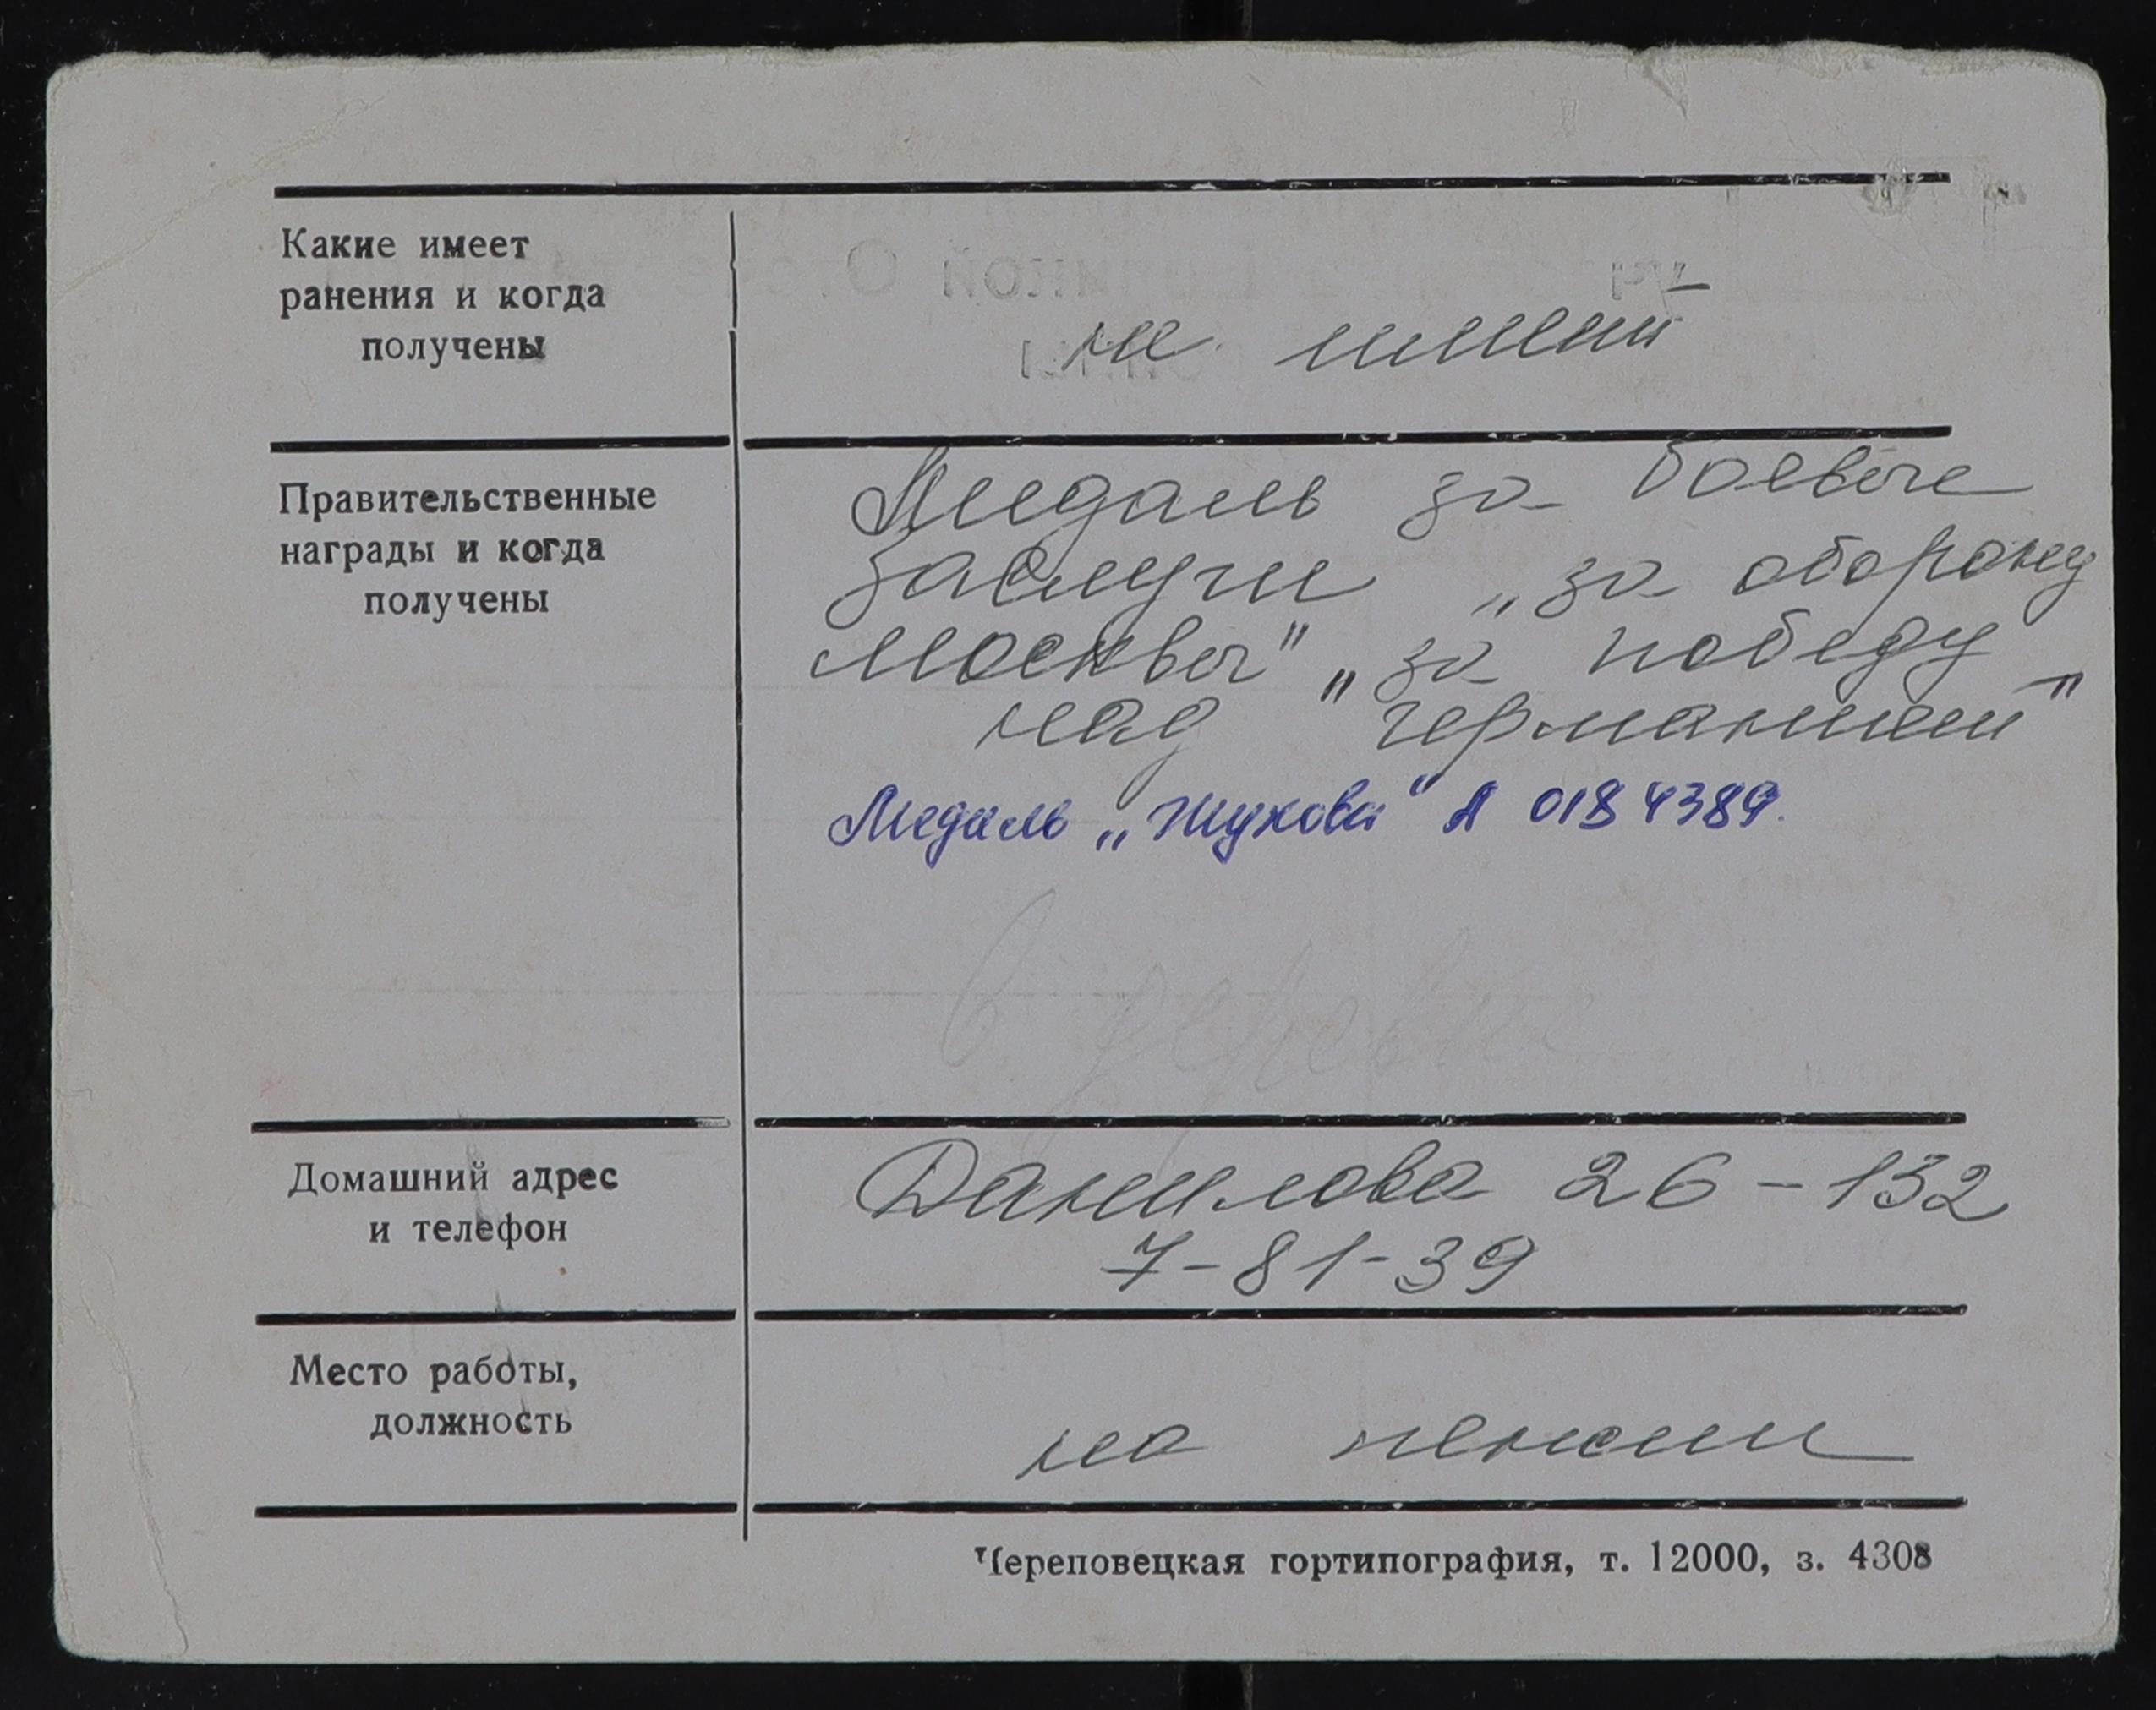 Какие имеет
ранения и когда
получены
не имеет
Правительственные
награды и когда
получены
Медаль за боевые
заслуги „за оборону
Москвы" „за победу
над германией"
Медаль „Жукова" А 0184389.
В деревне
Домашний адрес
и телефон
Данилова 26-132
7-81-39
Место работы,
должность
на пенсии
Череповецкая гортипография, т. 12000, з. 4308